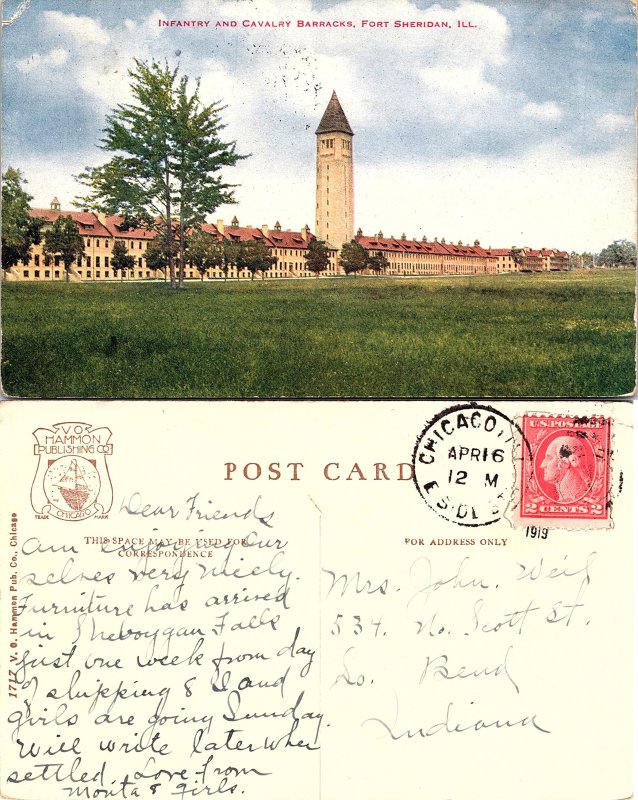 Infantry and Cavalry Barracks, Fort Sheridan, Ill.
V O
HAMMON
PUBLISHING CO
TRADE CHICAGO MARK
POST CARD
CHICAGO, ILL
APR 16
12 M
E SIDE STA
U.S. POSTAGE
2 CENTS 2
1919
THIS SPACE MAY BE USED FOR
CORRESPONDENCE
FOR ADDRESS ONLY
1717 V. O. Hammon Pub. Co., Chicago
Dear Friends
am enjoying our
selves very nicely.
Furniture has arrived
in Sheboygan Falls
just one week from day
of shipping & I and
girls are going Sunday.
Will write later when
settled. Love from
Monta & girls.
Mrs. John. Weil
534. No. Scott St.
So. Bend
Indiana